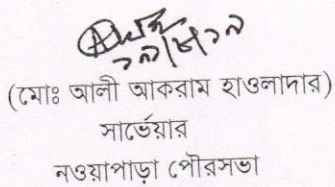 ১৯/৮/১৯
(মোঃ আলী আকরাম হাওলাদার)
সার্ভেয়ার
নওয়াপাড়া পৌরসভা